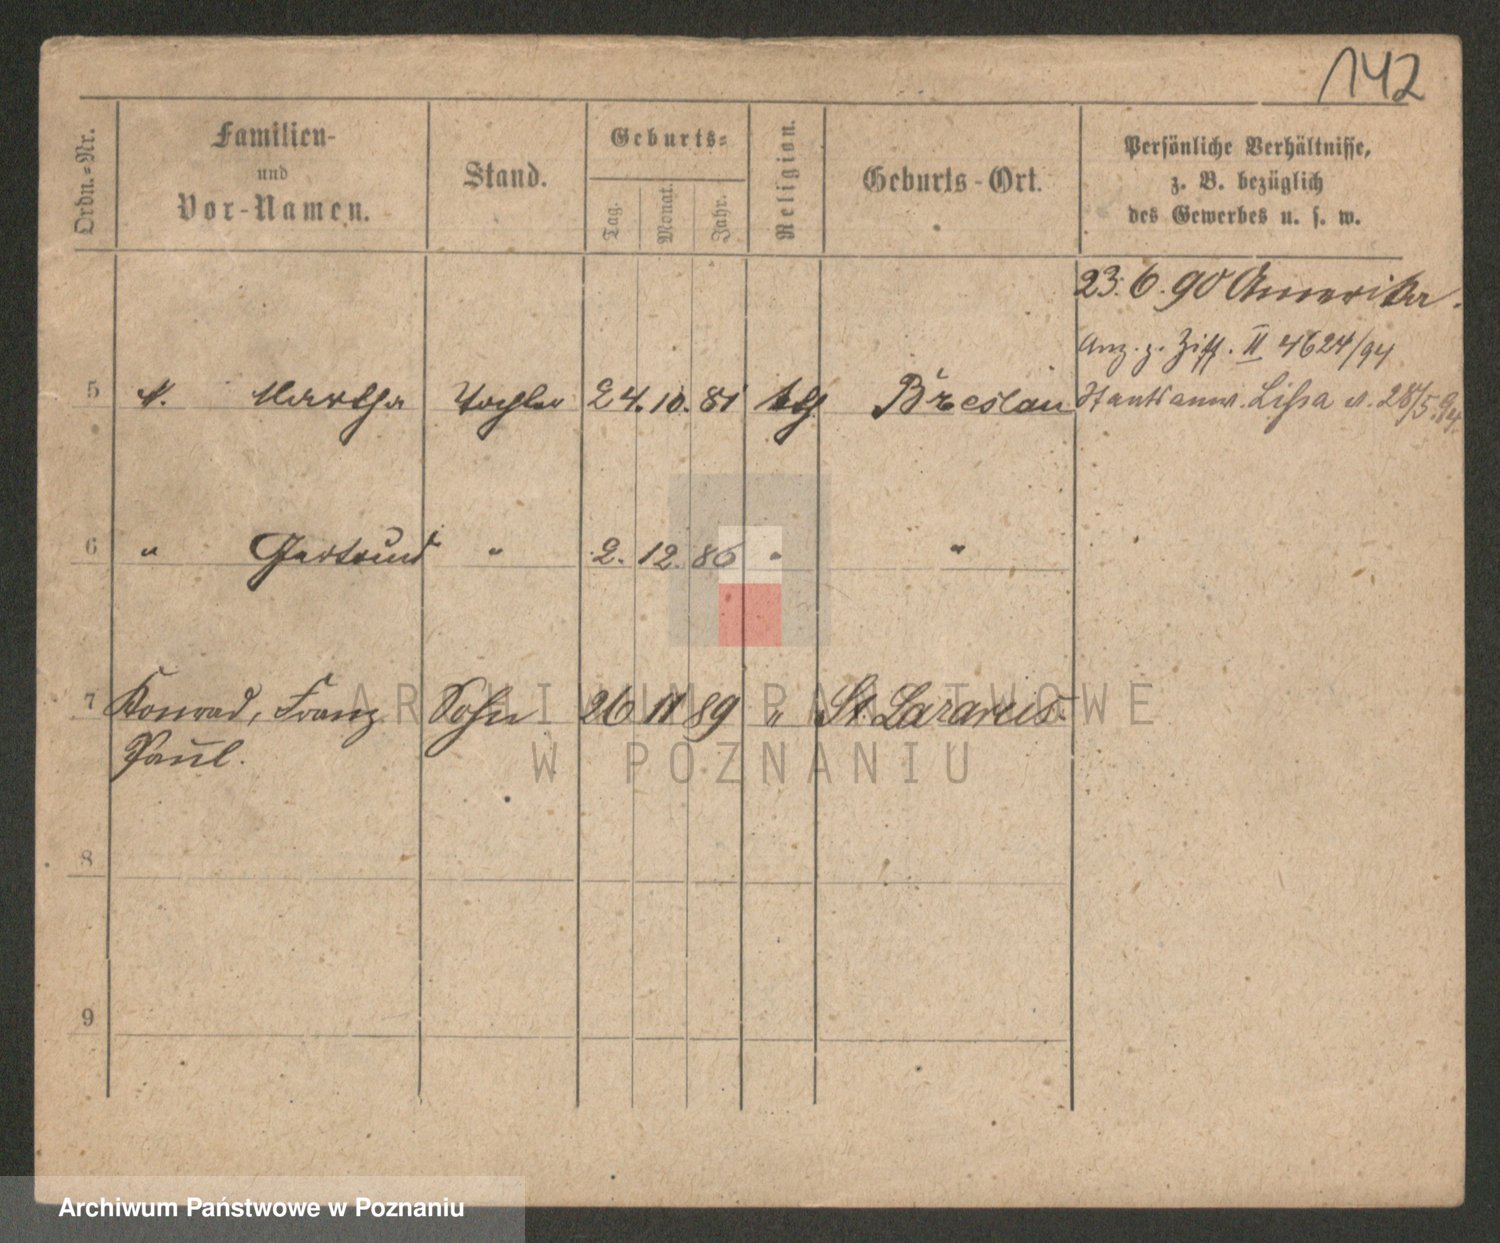 142
Ordn.-Nr.
Familien-
und
Vor-Namen.
Stand.
Geburts-
Tag.
Monat.
Jahr.
Religion.
Geburts-Ort.
Persönliche Verhältnisse,
z. B. bezüglich
des Gewerbes u. s. w.
23. 6. 90 Amerika.
Anz. z. Ziff. II 4624/94
Staatsanw. Lissa v. 28/5. 94.
5 Martha Tochter 24. 10. 81 kth Breslau
6 " Gertrud " 2. 12. 86 " "
7 Konrad, Franz Sohn 26 11 89 " St. Lazarus.
Paul.
8
9
ARCHIWUM PAŃSTWOWE
W POZNANIU
Archiwum Państwowe w Poznaniu